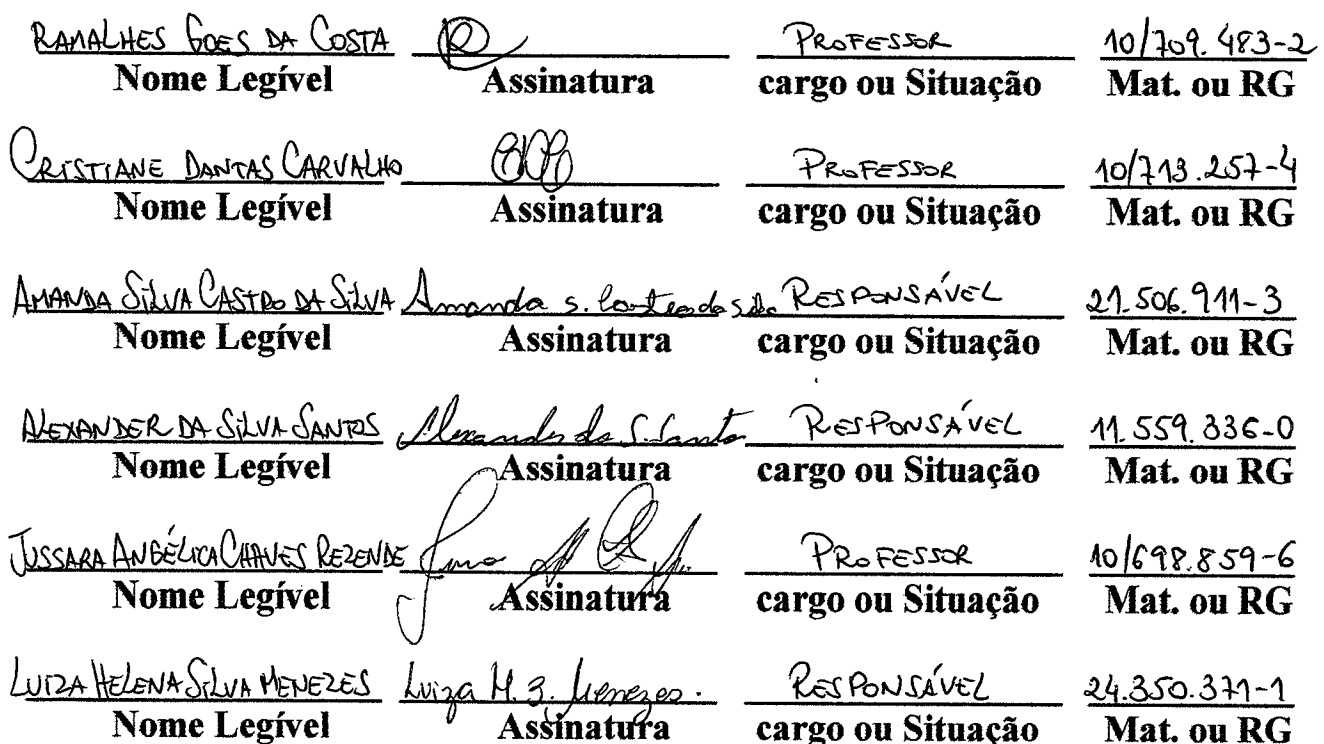 RAMALHES GOES DA COSTA PROFESSOR 10/709.483-2
Nome Legível Assinatura cargo ou Situação Mat. ou RG
CRISTIANE DANTAS CARVALHO PROFESSOR 10/713.257-4
Nome Legível Assinatura cargo ou Situação Mat. ou RG
AMANDA SILVA CASTRO DA SILVA Amanda S. Castro da Silva RESPONSÁVEL 21.506.911-3
Nome Legível Assinatura cargo ou Situação Mat. ou RG
ALEXANDER DA SILVA SANTOS Alexander da S. Santos RESPONSÁVEL 11.559.336-0
Nome Legível Assinatura cargo ou Situação Mat. ou RG
JUSSARA ANGÉLICA CHAVES REZENDE PROFESSOR 10/698.859-6
Nome Legível Assinatura cargo ou Situação Mat. ou RG
LUIZA HELENA SILVA MENEZES Luiza H. S. Menezes. RESPONSÁVEL 24.350.371-1
Nome Legível Assinatura cargo ou Situação Mat. ou RG